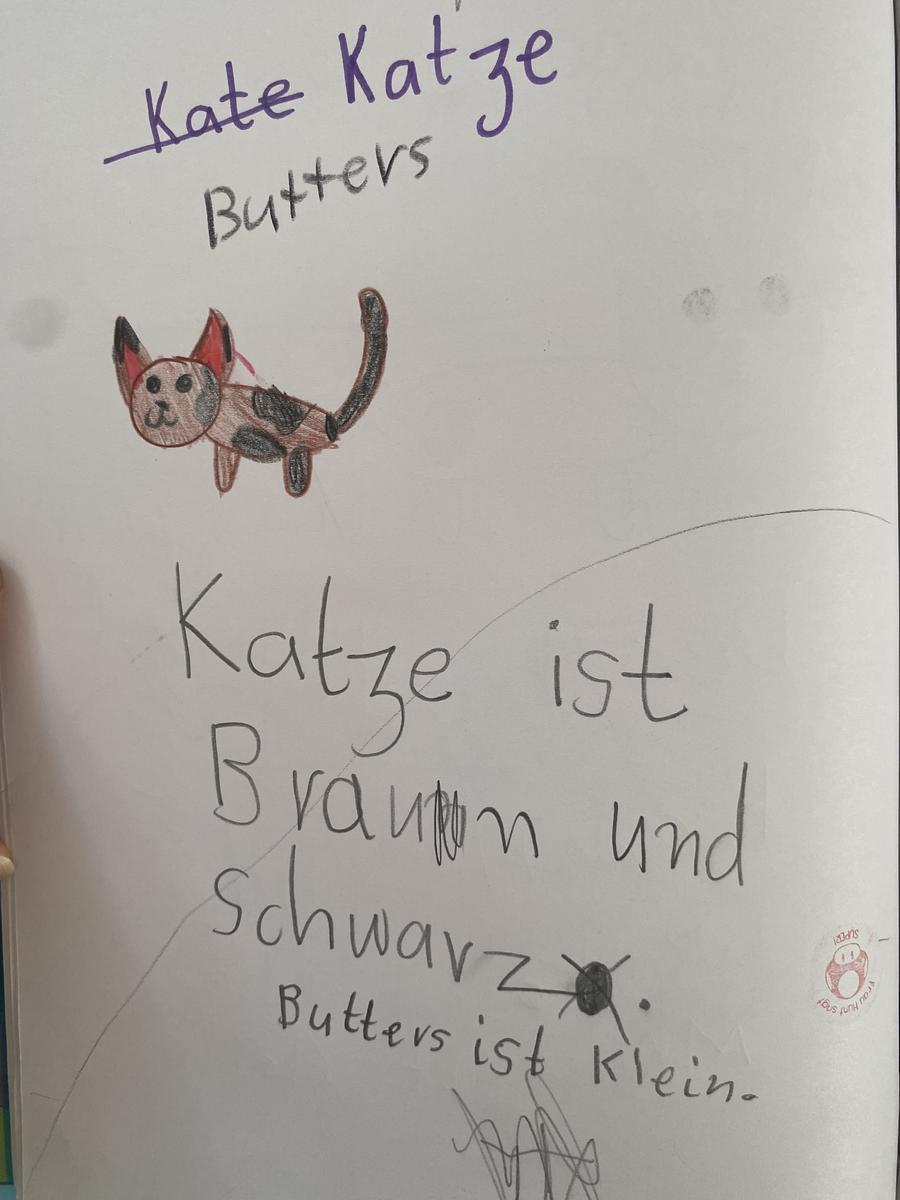 Kate Katze
Butters
Katze ist
Braun und
Schwarz.
Butters ist Klein.
SUPER!
Frau Hunt sagt